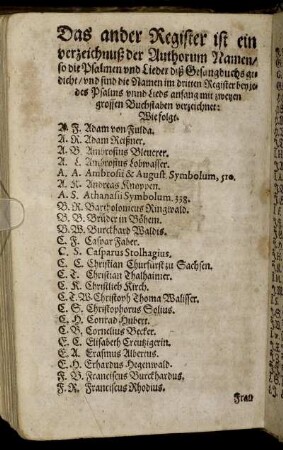 Das ander Register ist ein
verzeichnuß der Authorum Namen/
so die Psalmen vnd Lieder diß Gesangbuchs ge-
dicht/ vnd sind die Namen im dritten Register bey je-
des Psalms vnnd Lieds anfang mit zweyen
grossen Buchstaben verzeichnet:
Wie folgt.
A. F. Adam von Fulda.
A. R. Adam Reißner.
A. B. Ambrosius Bleuerer.
A. L. Ambrosius Lobwasser.
A. A. Ambrosii & August. Symbolum, 510.
A. K. Andreas Knoppen.
A. S. Athanasii Symbolum. 338.
B. R. Bartholomeus Ringwald.
B. B. Brüder in Böhem.
B. W. Burckhard Waldis.
C. F. Caspar Faber.
C. S. Casparus Stolhagius.
C. C. Christian Churfürst zu Sachsen.
C. T. Christian Thalhaimer.
C. K. Christlich Kirch.
C. T. W. Christoph Thoma Walisser.
C. S. Christophorus Solius.
C. H. Conrad Hubert.
C. B. Cornelius Becker.
E. C. Elisabeth Creutzigerin.
E. A. Erasmus Alberus.
E. H. Erhardus Hegenwald.
F. B. Franciscus Burckhardus.
F. R. Franciscus Rhodius.
Frau